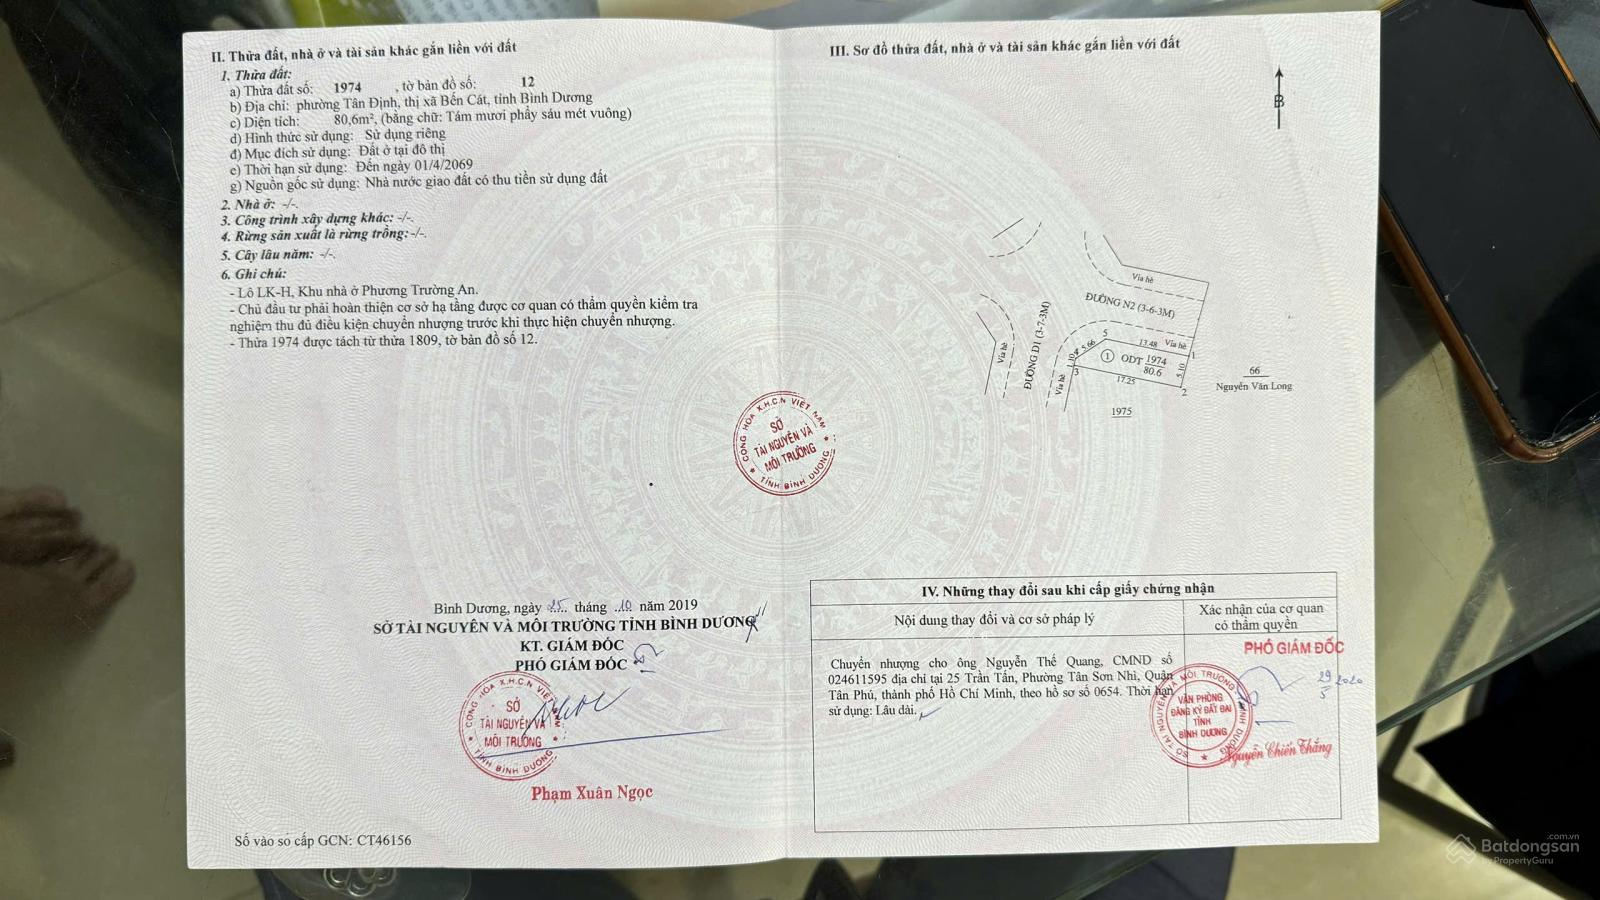 II. Thửa đất, nhà ở và tài sản khác gắn liền với đất
1. Thửa đất:
a) Thửa đất số: 1974 , tờ bản đồ số: 12
b) Địa chỉ: phường Tân Định, thị xã Bến Cát, tỉnh Bình Dương
c) Diện tích: 80,6m², (bằng chữ: Tám mươi phẩy sáu mét vuông)
d) Hình thức sử dụng: Sử dụng riêng
đ) Mục đích sử dụng: Đất ở tại đô thị
e) Thời hạn sử dụng: Đến ngày 01/4/2069
g) Nguồn gốc sử dụng: Nhà nước giao đất có thu tiền sử dụng đất
2. Nhà ở: -/-.
3. Công trình xây dựng khác: -/-.
4. Rừng sản xuất là rừng trồng: -/-.
5. Cây lâu năm: -/-.
6. Ghi chú:
- Lô LK-H, Khu nhà ở Phương Trường An.
- Chủ đầu tư phải hoàn thiện cơ sở hạ tầng được cơ quan có thẩm quyền kiểm tra
nghiệm thu đủ điều kiện chuyển nhượng trước khi thực hiện chuyển nhượng.
- Thửa 1974 được tách từ thửa 1809, tờ bản đồ số 12.
CỘNG HÒA X.H.C.N VIỆT NAM
SỞ
TÀI NGUYÊN VÀ
MÔI TRƯỜNG
TỈNH BÌNH DƯƠNG
Bình Dương, ngày 25 tháng 10 năm 2019
SỞ TÀI NGUYÊN VÀ MÔI TRƯỜNG TỈNH BÌNH DƯƠNG
KT. GIÁM ĐỐC
PHÓ GIÁM ĐỐC
CỘNG HÒA X.H.C.N VIỆT NAM
SỞ
TÀI NGUYÊN VÀ
MÔI TRƯỜNG
TỈNH BÌNH DƯƠNG
Phạm Xuân Ngọc
Số vào sổ cấp GCN: CT46156
III. Sơ đồ thửa đất, nhà ở và tài sản khác gắn liền với đất
B
Vỉa hè
ĐƯỜNG N2 (3-6-3M)
ĐƯỜNG D1 (3-7-3M)
Vỉa hè
Vỉa hè
Vỉa hè
5
13.48
1
5.66
4
3
1 ODT 1974
80.6
5.10
17.25
2
66
Nguyễn Văn Long
1975
IV. Những thay đổi sau khi cấp giấy chứng nhận
Nội dung thay đổi và cơ sở pháp lý
Xác nhận của cơ quan
có thẩm quyền
Chuyển nhượng cho ông Nguyễn Thế Quang, CMND số
024611595 địa chỉ tại 25 Trần Tấn, Phường Tân Sơn Nhì, Quận
Tân Phú, thành phố Hồ Chí Minh, theo hồ sơ số 0654. Thời hạn
sử dụng: Lâu dài.
PHÓ GIÁM ĐỐC
29
5
2020
SỞ TÀI NGUYÊN VÀ MÔI TRƯỜNG BÌNH DƯƠNG
VĂN PHÒNG
ĐĂNG KÝ ĐẤT ĐAI
TỈNH
BÌNH DƯƠNG
Nguyễn Chiến Thắng
Batdongsan
.com.vn
by PropertyGuru